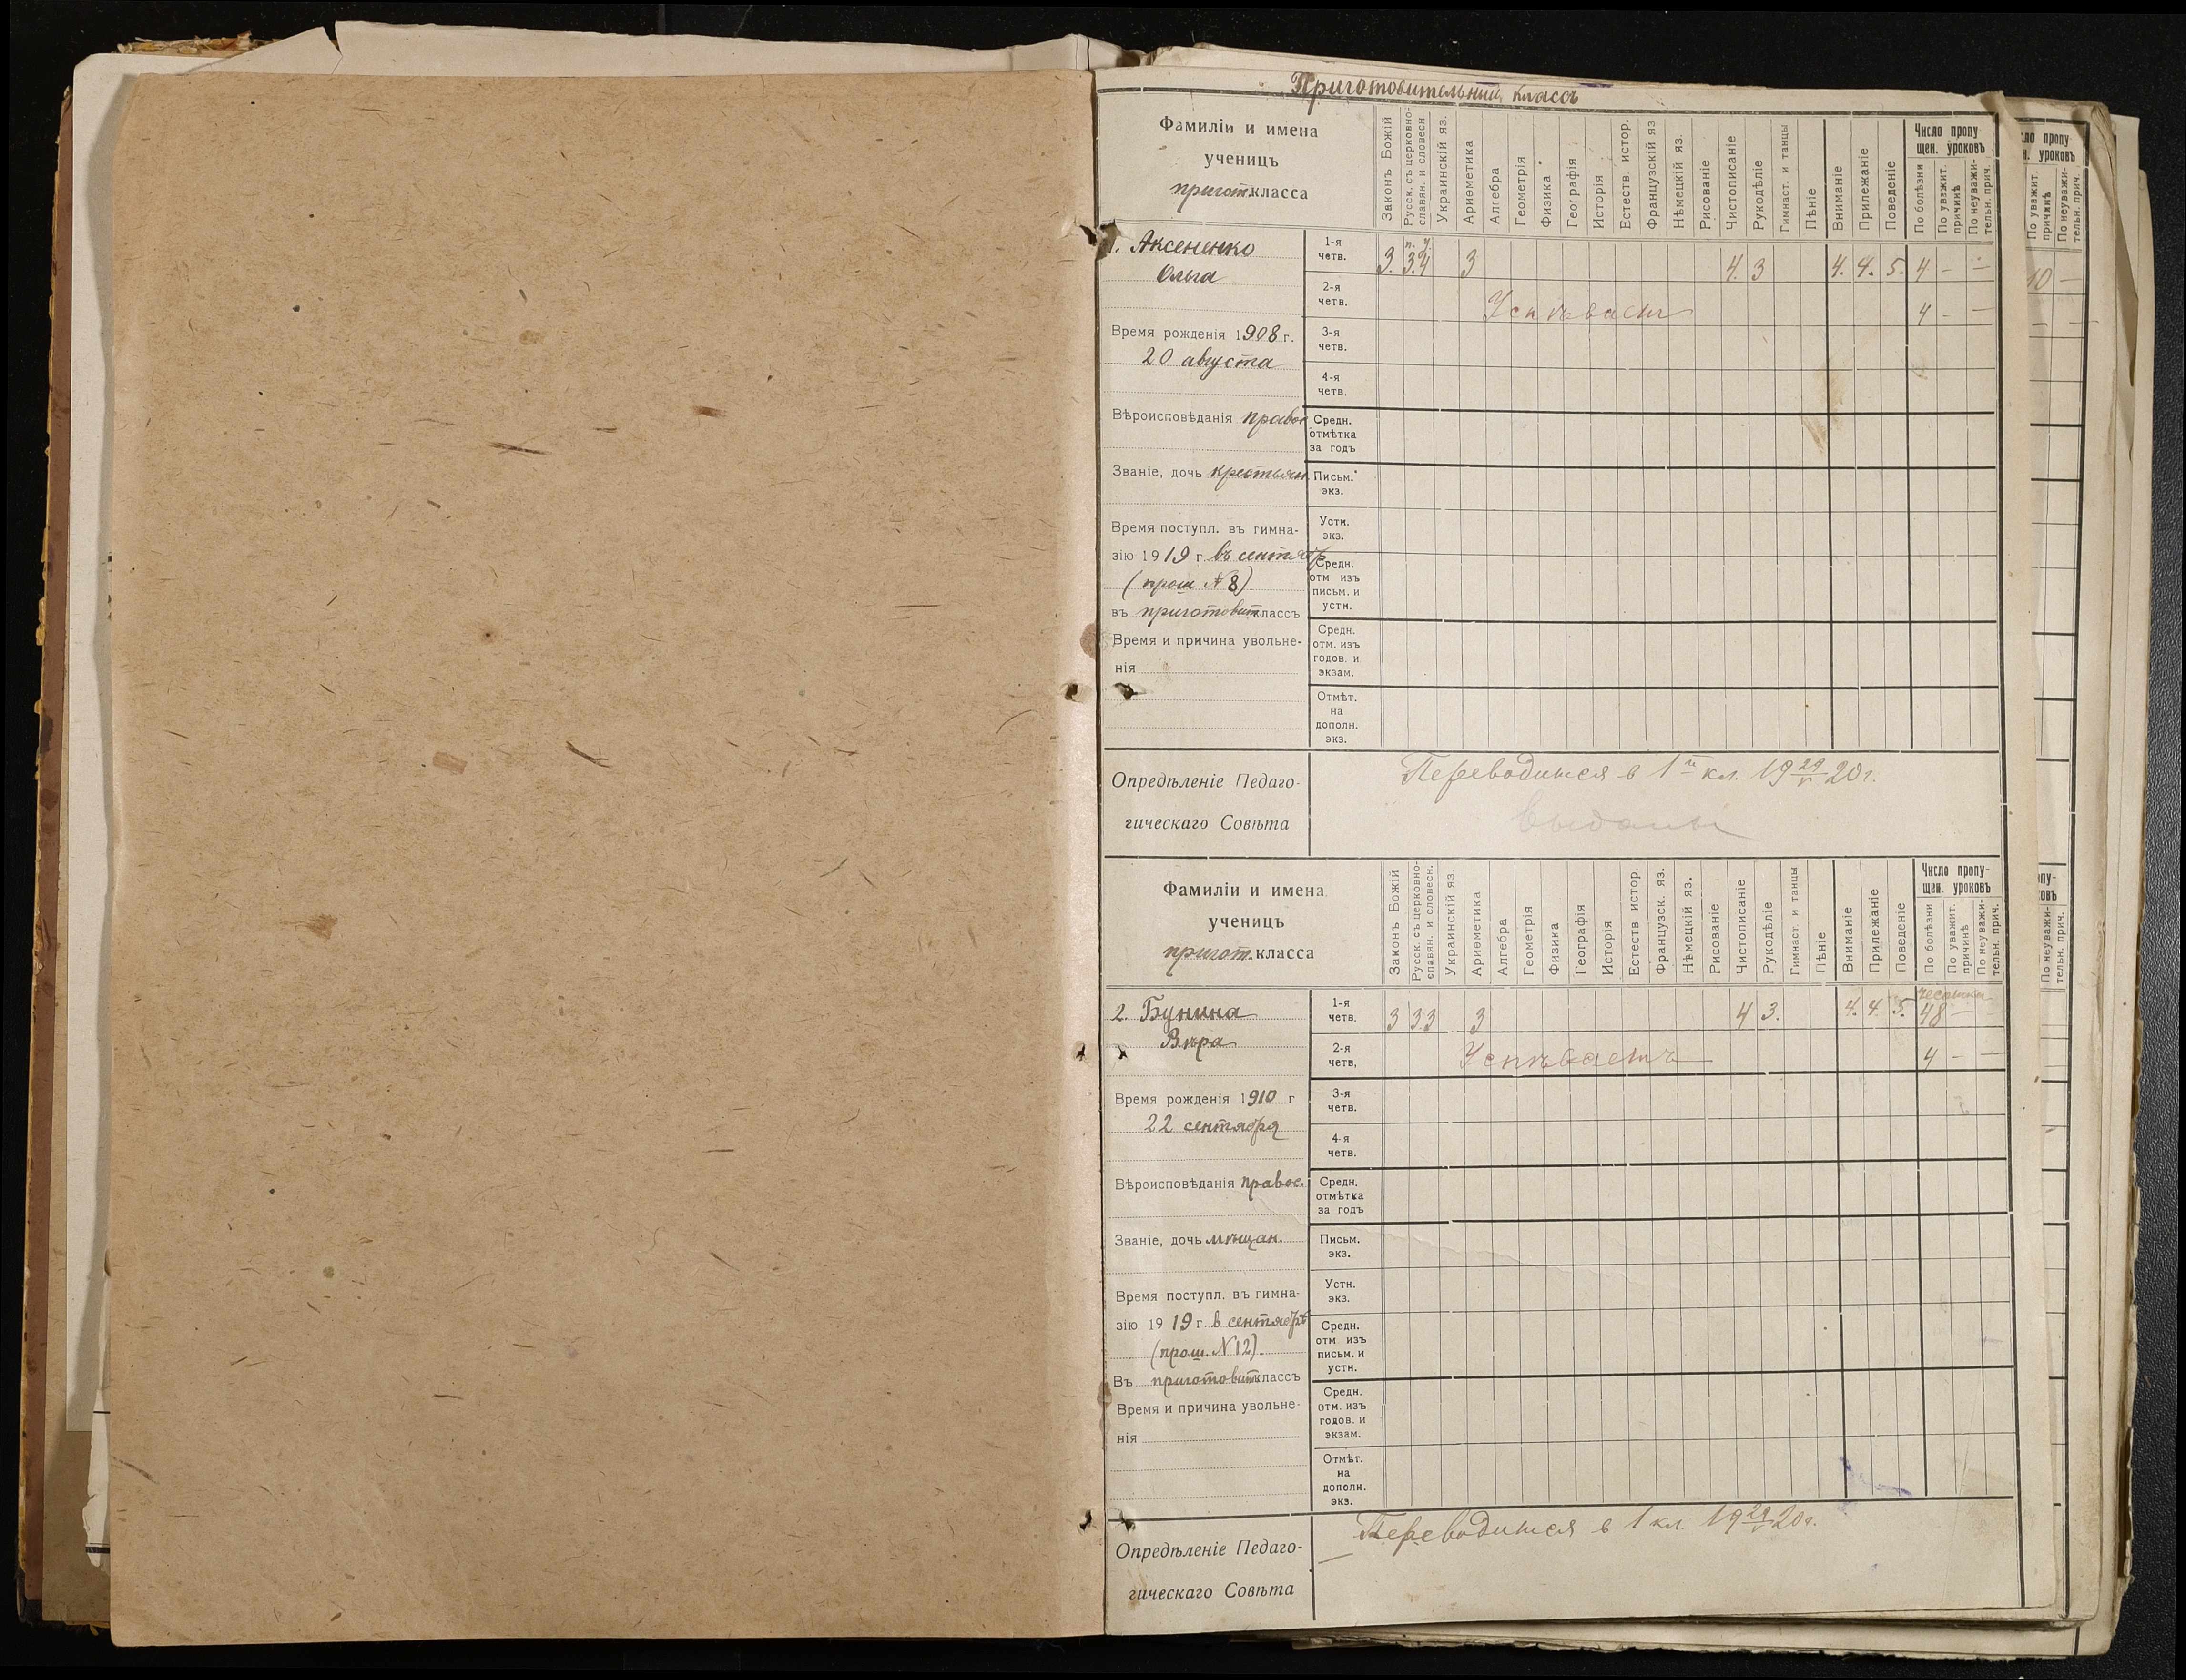 Приготовительный классъ
Фамиліи и имена
ученицъ
пригот. класса
Законъ Божій
Русск. съ церковно-
славян. и словесн
Украинскій яз.
Ариѳметика
Алгебра
Геометрія
Физика
Географія
Исторія
Естеств. истор.
Французскій яз
Нѣмецкій яз.
Рисованіе
Чистописаніе
Рукодѣліе
Гимнаст. и танцы
Пѣніе
Вниманіе
Прилежаніе
Поведеніе
Число пропу
щен. уроковъ
По болѣзни
По уважит.
причинѣ
По неуважи-
тельн. прич.
1. Аксененко
Ольга
1-я
четв.
п. у.
3. 3.4 3 4. 3 4. 4. 5. 4 - -
2-я
четв.
Успѣваетъ 4 - -
Время рожденія 1908 г.
20 августа
3-я
четв.
4-я
четв.
Вѣроисповѣданія правос
Средн.
отмѣтка
за годъ
Званіе, дочь крестьян.
Письм.
экз.
Время поступл. въ гимна-
зію 1919 г. въ сентябр
(прош. №8)
въ приготовит классъ
Устн.
экз.
Средн.
отм изъ
письм. и
устн.
Время и причина увольне-
нія
Средн.
отм. изъ
годов. и
экзам.
Отмѣт.
на
дополн.
экз.
Опредѣленіе Педаго-
гическаго Совѣта
Переводится в 1й кл. 19 29/V 20 г.
Выданы
Фамиліи и имена
ученицъ
пригот. класса
Законъ Божій
Русск. съ церковно-
славян. и словесн.
Украинскій яз.
Ариѳметика
Алгебра
Геометрія
Физика
Географія
Исторія
Естеств истор.
Французск. яз.
Нѣмецкій яз.
Рисованіе
Чистописаніе
Рукодѣліе
Гимнаст. и танцы
Пѣніе
Вниманіе
Прилежаніе
Поведеніе
Число пропу-
щен. уроковъ
По болѣзни
По уважит.
причинѣ
По неуважи-
тельн. прич.
2. Бунина
Вѣра
1-я
четв.
чесотка
3 3.3 3 4 3. 4. 4. 5. 48 -
2-я
четв.
Успѣваетъ 4 - -
Время рожденія 1910 г
22 сентября
3-я
четв.
4-я
четв.
Вѣроисповѣданія правос.
Средн.
отмѣтка
за годъ
Званіе, дочь мѣщан.
Письм.
экз.
Время поступл. въ гимна-
зію 1919 г. в сентябрѣ
(прош. №12).
Въ приготовит классъ
Устн.
экз.
Средн.
отм изъ
письм. и
устн.
Время и причина увольне-
нія
Средн.
отм. изъ
годов. и
экзам.
Отмѣт.
на
дополн.
экз.
Опредѣленіе Педаго-
гическаго Совѣта
Переводится в 1 кл. 19 29/V 20 г.
ло пропу
н. уроковъ
По уважит.
причинѣ
По неуважи-
тельн. прич.
10 -
- -
пу-
овъ
По неуважи-
тельн. прич.